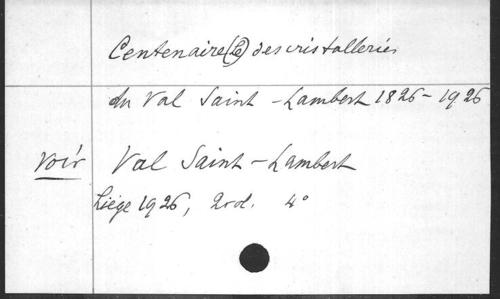 Centenaire (Le) des cristalleries
du Val Saint-Lambert 1826-1926
voir Val Saint-Lambert
Liége 1926, 2 vol. 4°